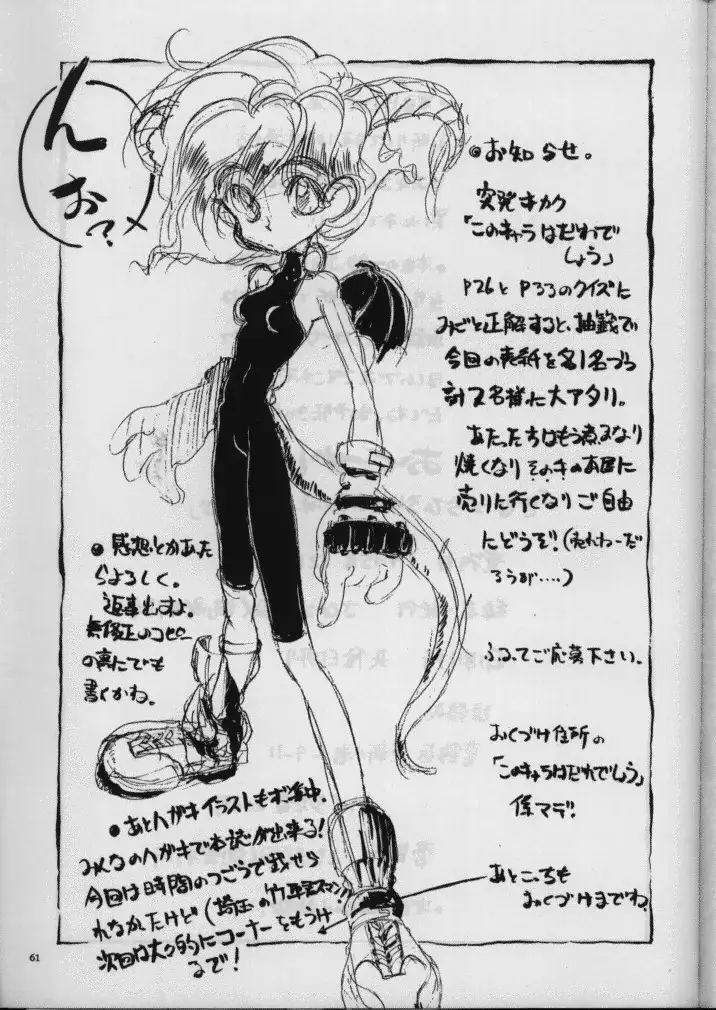 んお?
●お知らせ。
突発キカク
「このキャラはだれで
しょう」
P26とP33のクイズに
みごと正解すると、抽籤で
今回の表紙を各1名づつ
計2名様に大アタリ。
あたった方はもう煮るなり
焼くなりそのキのお店に
売りに行くなりご自由
にどうぞ!(売れねーだ
ろうが‥‥)
ふるってご応募下さい。
おくづけ住所の
「このキャラはだれでしょう」
係マデ!
あとこっちも
おくづけまでね。
●感想とかあた
らよろしく。
返事出すよ。
無修正のコピー
の裏にでも
書くかね。
●あとハガキイラストもボ集中。
みんなのハガキで本誌が出来る!
今回は時間のつごうで載せら
れなかたけど(埼玉の竹
スマン!!)
次回は大々的にコーナーをもうけ
るで!
61